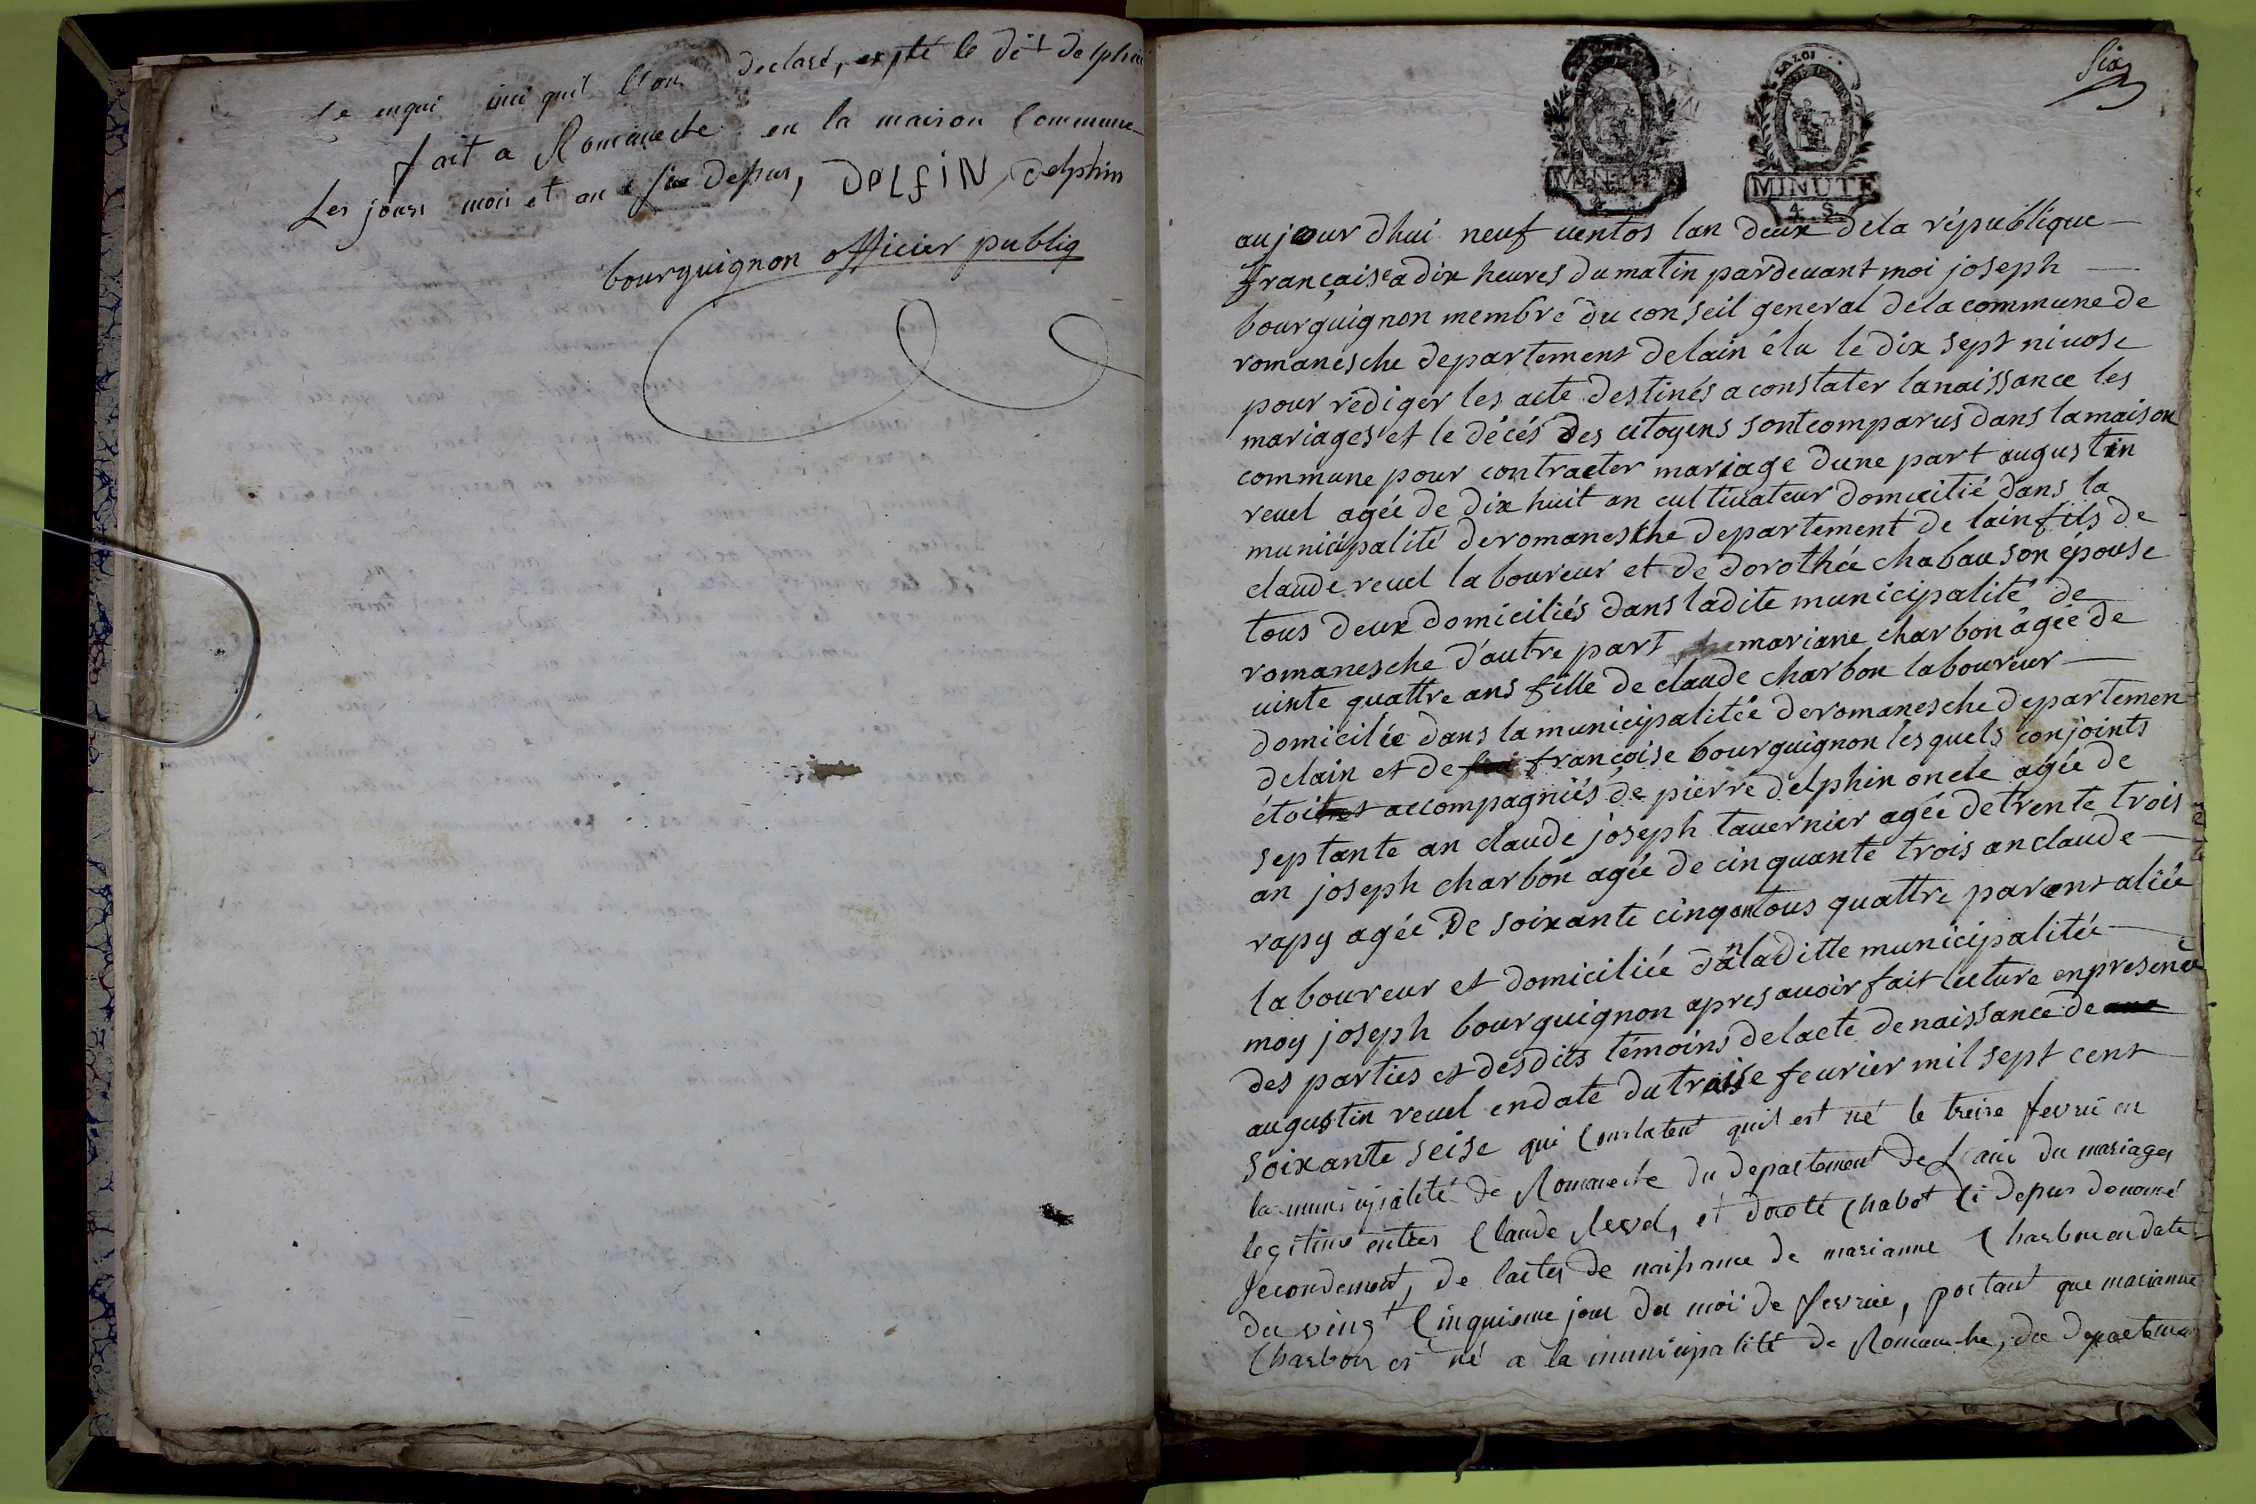 declaré, exsté le dit delphin
fait a Romaneche en la maison Commune
Les jours mois et an Sie depus, DELFiN, delphin
bourguignon officier publiq
Six
LA LOI
MINUTE
MINUTE
4. S
aujour dhui neuf uentos lan deux dela république
française a dix heures du matin pardeuant moi joseph
bourguignon membre du conseil general dela commune de
romanesche departement delain élu le dix sept niuose
pour rédiger les acte destinés a constater lanaissance les
mariages et le décés des citoyens sont comparus dans lamaison
commune pour contracter mariage dune part augustin
reuel agée de dix huit an cultiuateur domicilié dans la
municipalité deromanesche departement de lain fils de
claude reuel laboureur et de dorothée chabau son épouse
tous deux domiciliés dans ladite municipalité de
romanesche d'autre part mariane charbon âgée de
uinte quattre ans fille de claude charbon laboureur
domiciliée dans la municipalitée deromanesche departemen
delain et de françoise bourguignon lesquels conjoints
étoient accompagniés de pierre delphin oncle agée de
septante an claude joseph tauernier agée detrente trois
an joseph charbon agée de cinquante trois an claude
rapy agée de soixante cinq an tous quattre parent aliée
laboureur et domiciliée dan laditte municipalitée
moy joseph bourguignon apres auoir fait lecture enpresence
des parties et desdits témoins delacte denaissance de
augustin reuel endate du treise feurier mil sept cent
soixante seise qui Constatent quil est né le treise fevrié en
la municipalité de Romaneche du departement de Lain du mariages
legitime entres Claude Revel, et doroté Chabot Ci depus denomé
secondement, de lactes de naissance de marianne Charbon en date
du vingt Cinquieme jour du moi de fevrié, portant que marianne
Charbon es né a la municipalité de Romaneche, du departemen